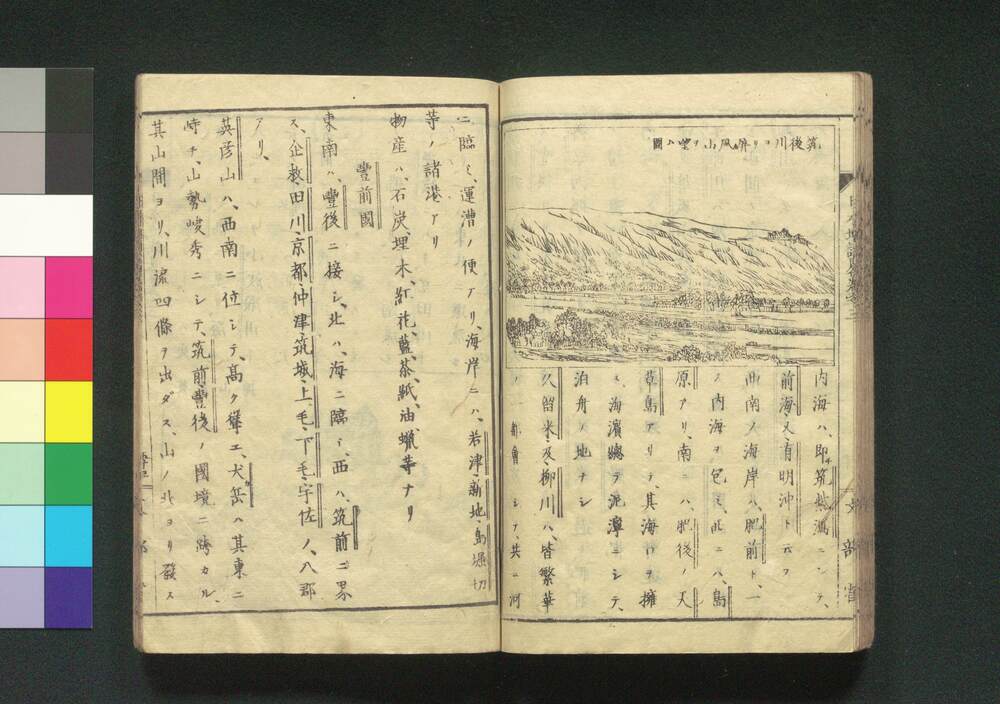 筑後川ヨリ屏風山ヲ望ム圖
内海ハ、即筑紫潟ニシテ、
前海、又有明沖ト云フ
西南ノ海岸ハ、肥前ト、一
ノ内海ヲ包ミ、此ニハ、島
原アリ、南ニハ、肥後ノ天
草島アリテ、其海口ヲ擁
ス、海濱總テ泥濘ニシテ、
泊舟ノ地ナシ
久留米、及柳川ハ、皆繁華
ノ都會ニシテ、共ニ河
ニ臨ミ、運漕ノ便アリ、海岸ニハ、若津、新地、島堀切
等ノ諸港アリ
物産ハ、石炭、埋木、紅花、藍、茶、紙、油、蠟等ナリ
豐前國
東南ハ、豐後ニ接シ、北ハ、海ニ臨ミ、西ハ、筑前ニ界
ス、企救、田川、京都、仲津、筑城、上毛、下毛、宇佐ノ、八郡
アリ、
英彦山ハ、西南ニ位シテ、高ク聳エ、犬岳ハ其東ニ
峙チ、山勢峻秀ニシテ、筑前、豐後ノ國境ニ跨カル、
其山間ヨリ、川流四條ヲ出ダス、山ノ北ヨリ發ス
文部省